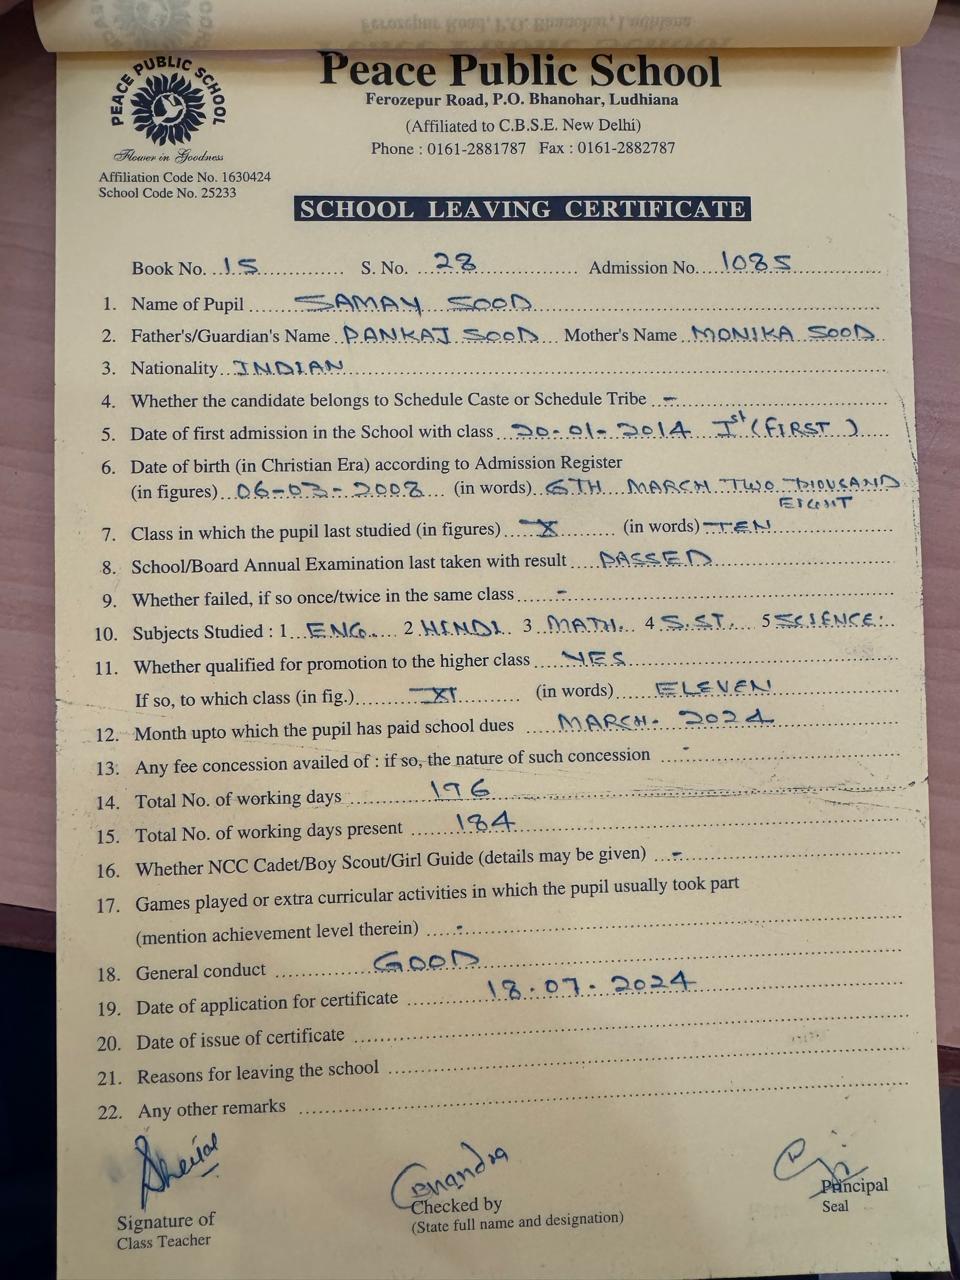 PEACE PUBLIC SCHOOL
Flower in Goodness
Affiliation Code No. 1630424
School Code No. 25233
Peace Public School
Ferozepur Road, P.O. Bhanohar, Ludhiana
(Affiliated to C.B.S.E. New Delhi)
Phone : 0161-2881787 Fax : 0161-2882787
SCHOOL LEAVING CERTIFICATE
Book No. 15 S. No. 28 Admission No. 1085
1. Name of Pupil SAMAY SOOD
2. Father's/Guardian's Name PANKAJ SOOD Mother's Name MONIKA SOOD
3. Nationality INDIAN
4. Whether the candidate belongs to Schedule Caste or Schedule Tribe -
5. Date of first admission in the School with class 20-01-2014 Ist (FIRST)
6. Date of birth (in Christian Era) according to Admission Register
(in figures) 06-03-2008 (in words) 6TH MARCH TWO THOUSAND
EIGHT
7. Class in which the pupil last studied (in figures) X (in words) TEN
8. School/Board Annual Examination last taken with result PASSED
9. Whether failed, if so once/twice in the same class -
10. Subjects Studied : 1 ENG. 2 HINDI. 3 MATH. 4 S.ST. 5 SCIENCE.
11. Whether qualified for promotion to the higher class YES
If so, to which class (in fig.) XI (in words) ELEVEN
12. Month upto which the pupil has paid school dues MARCH - 2024
13. Any fee concession availed of : if so, the nature of such concession -
14. Total No. of working days 196
15. Total No. of working days present 184
16. Whether NCC Cadet/Boy Scout/Girl Guide (details may be given) -
17. Games played or extra curricular activities in which the pupil usually took part
(mention achievement level therein) -
18. General conduct GOOD
19. Date of application for certificate 18.07.2024
20. Date of issue of certificate
21. Reasons for leaving the school
22. Any other remarks
Signature of
Class Teacher
Checked by
(State full name and designation)
Principal
Seal